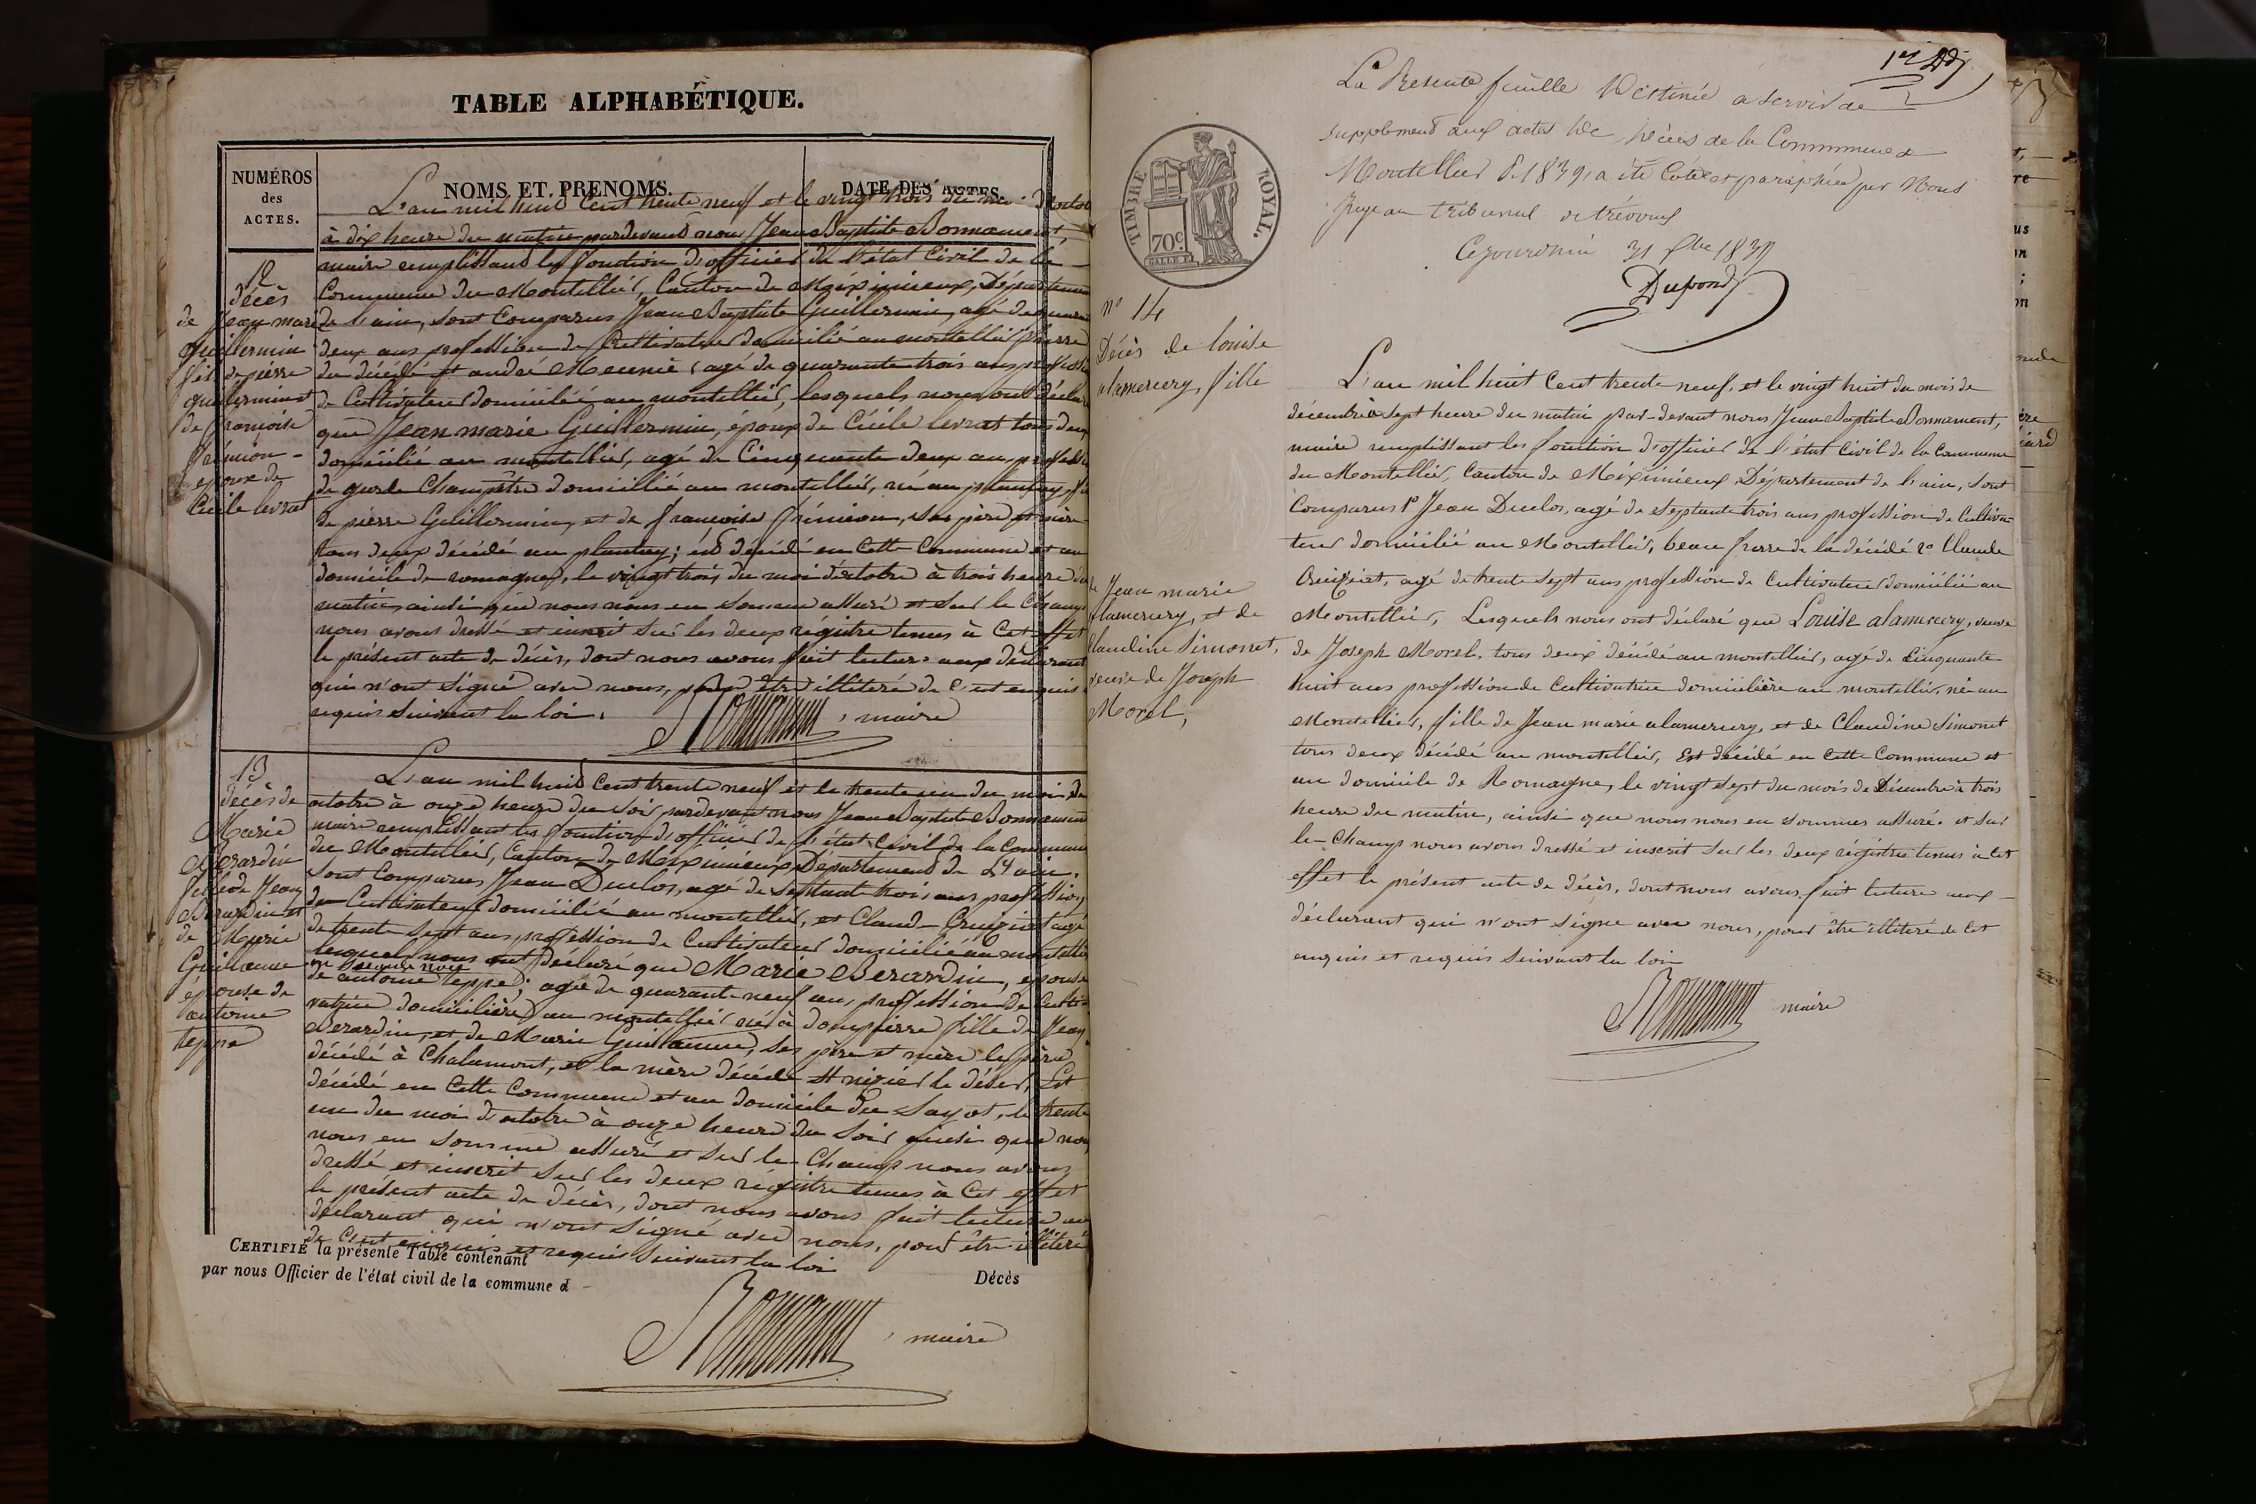 TABLE ALPHABÉTIQUE.
NUMÉROS
des
ACTES.
NOMS ET PRENOMS.
DATE DES ACTES.
12
décès
de Jean marie
guillermin
fils de pierre
guillermin et
de françoise
frémion
époux de
Cécile levrat
L'an mil huit Cent trente neuf et le vingt trois du moi d'octob
à dix heure du matin pardevant nous Jean Baptiste Bonnament
maire remplissant les fonction d'officier de l'état Civil de la
Commune du Montellier, Canton de Méximieux, Département
de l'ain, sont Comparus Jean Baptiste Guillermin, agé de
deux ans profession de Cultivateur domicilié au montellier frerre
du décédé et andré Meunier agé de quarante trois ans profession
de Cultivateur domicilié au montellier, lesquels nous ont déclaré
que Jean marie Guillermin, époux de Cécile levrat tous deux
domicilié au montellier, agé de Cinquante deux an, profession
de garde Champêtre domicillié au montellier, né au plantay, fils
de pierre Guillermin, et de francoise frémion, ses père et mère
tous deux décédé au plantay; est décédé en Cette Commune et au
domicile de romagne, le vingt trois du moi d'octobre à trois heure du
matin, ainsi que nous nous en somme assuré et sur le Champ
nous avons dressé et inscrit sur les deux régistre tenus à Cet effet
le présent acte de décès, dont nous avons fait lecture aux déclarant
qui n'ont signé avec nous, pour être illiteré de C'est enquis
requis suivant la loi.
Bonnament, maire
13
décès de
Marie
Berardin
fille de Jean
Berardin et
de Marie
Guillaume
épouse de
antoine
teppe
L'an mil huit Cent trente neuf et le trente un du moi de
octobre à onze heure du soir pardevant nous Jean Baptiste Bonnament
maire remplissant les fonction d'officier de l'état Civil de la Commune
du Montellier, Canton de Méximieux, Département de L'ain.
Sont Comparus Jean Duclos, agé de septante trois ans profession
de Cultivateur domicilié au montellier, et Claude Cruiziat agé
de trente sept ans profession de Cultivateur domicilié au montellier
lesquels nous ont déclaré que Marie Berardin, épouse
en seconde noce
de antoine teppe; agée de quarante neuf an, profession de Culti-
vatrice domicilière au montellier né à dompierre fille de Jean
Berardin, et de Marie Guillaume, ses père et mère le père
décédé à Chalamont, et la mère décédé St nizier le désert, Est
décédé en Cette Commune et au domicile du Sayot, le trente
un du moi d'octobre à onze heure du soir ainsi que nous
nous en somme assuré et sur le Champ nous avons
dressé et inscrit sur les deux régistre tenus à Cet effet
le présent acte de décès, dont nous avons fait lecture aux
déclarant qui n'ont signé avec nous, pour être illiteré
de C'est enquis et requis suivant la loi
CERTIFIÉ la présente Table contenant
par nous Officier de l'état civil de la commune d
Décès
Bonnament, maire
1er
La Presente feuille Destinée a servir de
supplement aux actes de Décès de la Commune de
Montellier de 1839, a été Cotée et paraphée par Nous
Juge au tribunal de trévoux
Cejourdhui 31 Xbre 1839
Dupond
TIMBRE ROYAL.
70c.
nº 14
Décès de louise
alamercery, fille
de Jean marie
alamercery, et de
Claudine Simonet,
veuve de Joseph
Morel,
L'an mil huit Cent trente neuf, et le vingt huit du mois de
décembre à sept heure du matin par-devant nous Jean Baptiste Bonnament,
maire remplissant les fonction d'officier de l'état Civil de la Commune
du Montellier, Canton de Méximieux, Département de l'ain, sont
Comparus 1º Jean Duclos, agé de septante trois ans profession de Cultiva-
teur domicilié au Montellier, beau frerre de la décédé 2º Claude
Cruiziat, agé de trente sept ans profession de Cultivateur domicilié au
Montellier, Lesquels nous ont déclaré que Louise alamercery, veuve
de Joseph Morel, tous deux décédé au montellier, agé de Cinquante
huit ans profession de Cultivatrice domicilière au montellier, né au
Montellier, fille de Jean marie alamercery, et de Claudine Simonet
tous deux décédé au montellier, Est décédé en Cette Commune et
au domicile de Romagne, le vingt sept du mois de Décembre à trois
heure du matin, ainsi que nous nous en sommes assuré. et sur
le-Champ nous avons dressé et inscrit sur les deux régistre tenus à Cet
effet le présent acte de décès, dont nous avons fait lecture aux
déclarant qui n'ont signé avec nous, pour être illiteré de Cet
enquis et requis suivant la loi
Bonnament maire